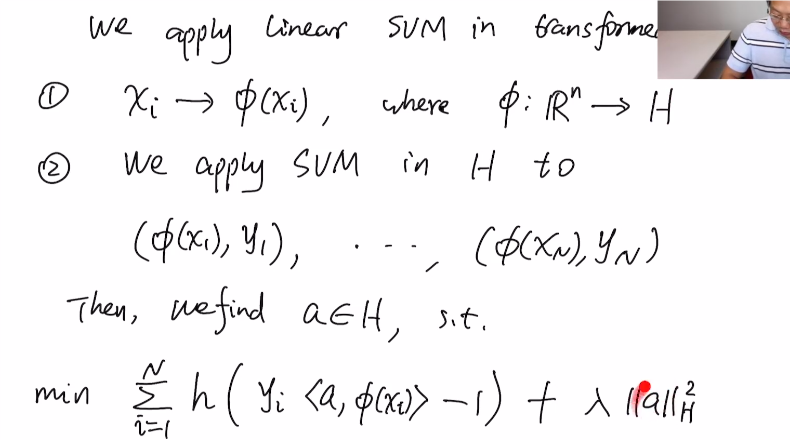 We apply linear SVM in transforme
① xᵢ → ϕ(xᵢ), where ϕ: ℝⁿ → H
② We apply SVM in H to
(ϕ(x₁), y₁), ..., (ϕ(x_N), y_N)
Then, we find a∈H, s.t.
min ∑ᵢ₌₁ᴺ h( yᵢ <a, ϕ(xᵢ)> −1) + λ ||a||²_H